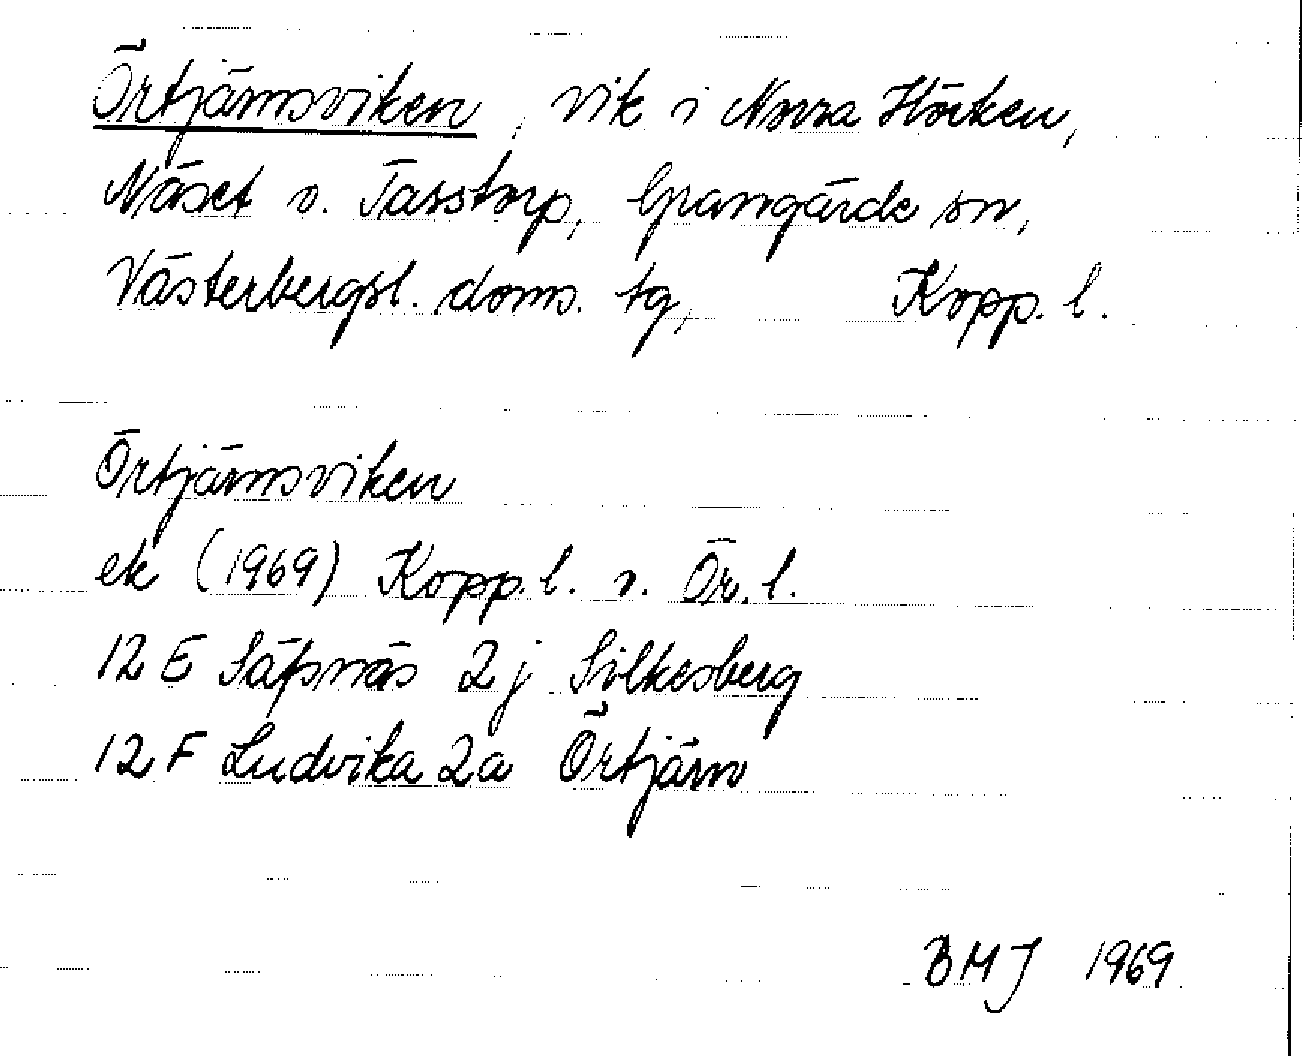 Örtjärnsviken, vik i Norra Hörken,
Näset o. Tasstorp, Grangärde sn,
Västerbergsl. doms. tg, Kopp. l.
Örtjärnsviken
ek (1969) Kopp. l. v. Ör. l.
12 E Säfsnäs 2j Silkesberg
12 F Ludvika 2a Örtjärn
BMJ 1969